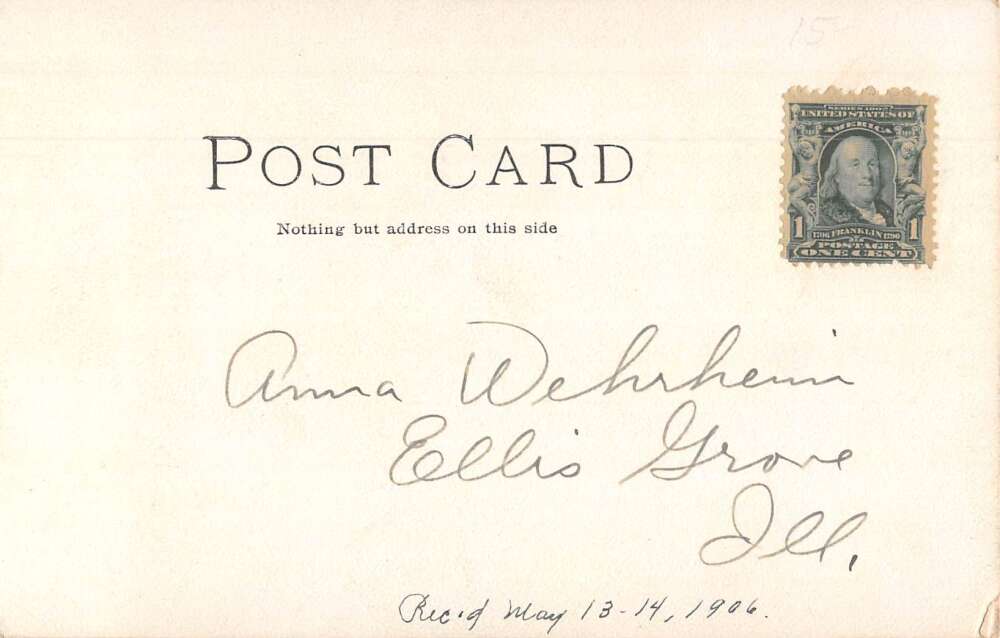 15
POST CARD
Nothing but address on this side
SERIES 1902
UNITED STATES OF
AMERICA
1 1706 FRANKLIN 1790 1
POSTAGE
ONE CENT
Anna Wehrheim
Ellis Grove
Ill.
Rec'd May 13-14, 1906.